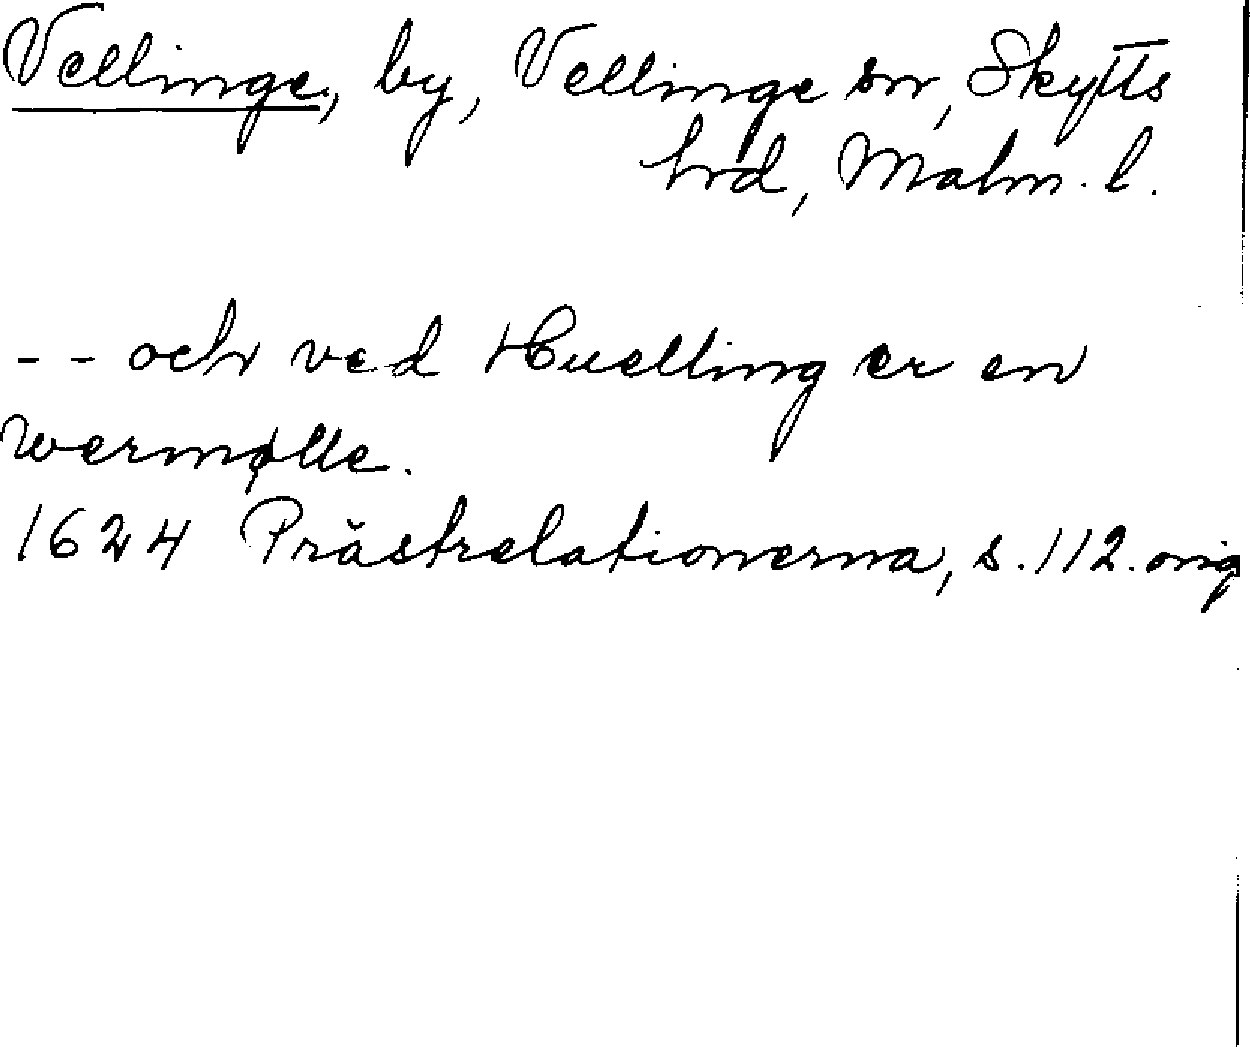 Vellinge, by, Vellinge sn, Skytts
hrd, Malm. l.
- - och ved Huelling er en
wermølle.
1624 Prästrelationerna, s. 112. orig